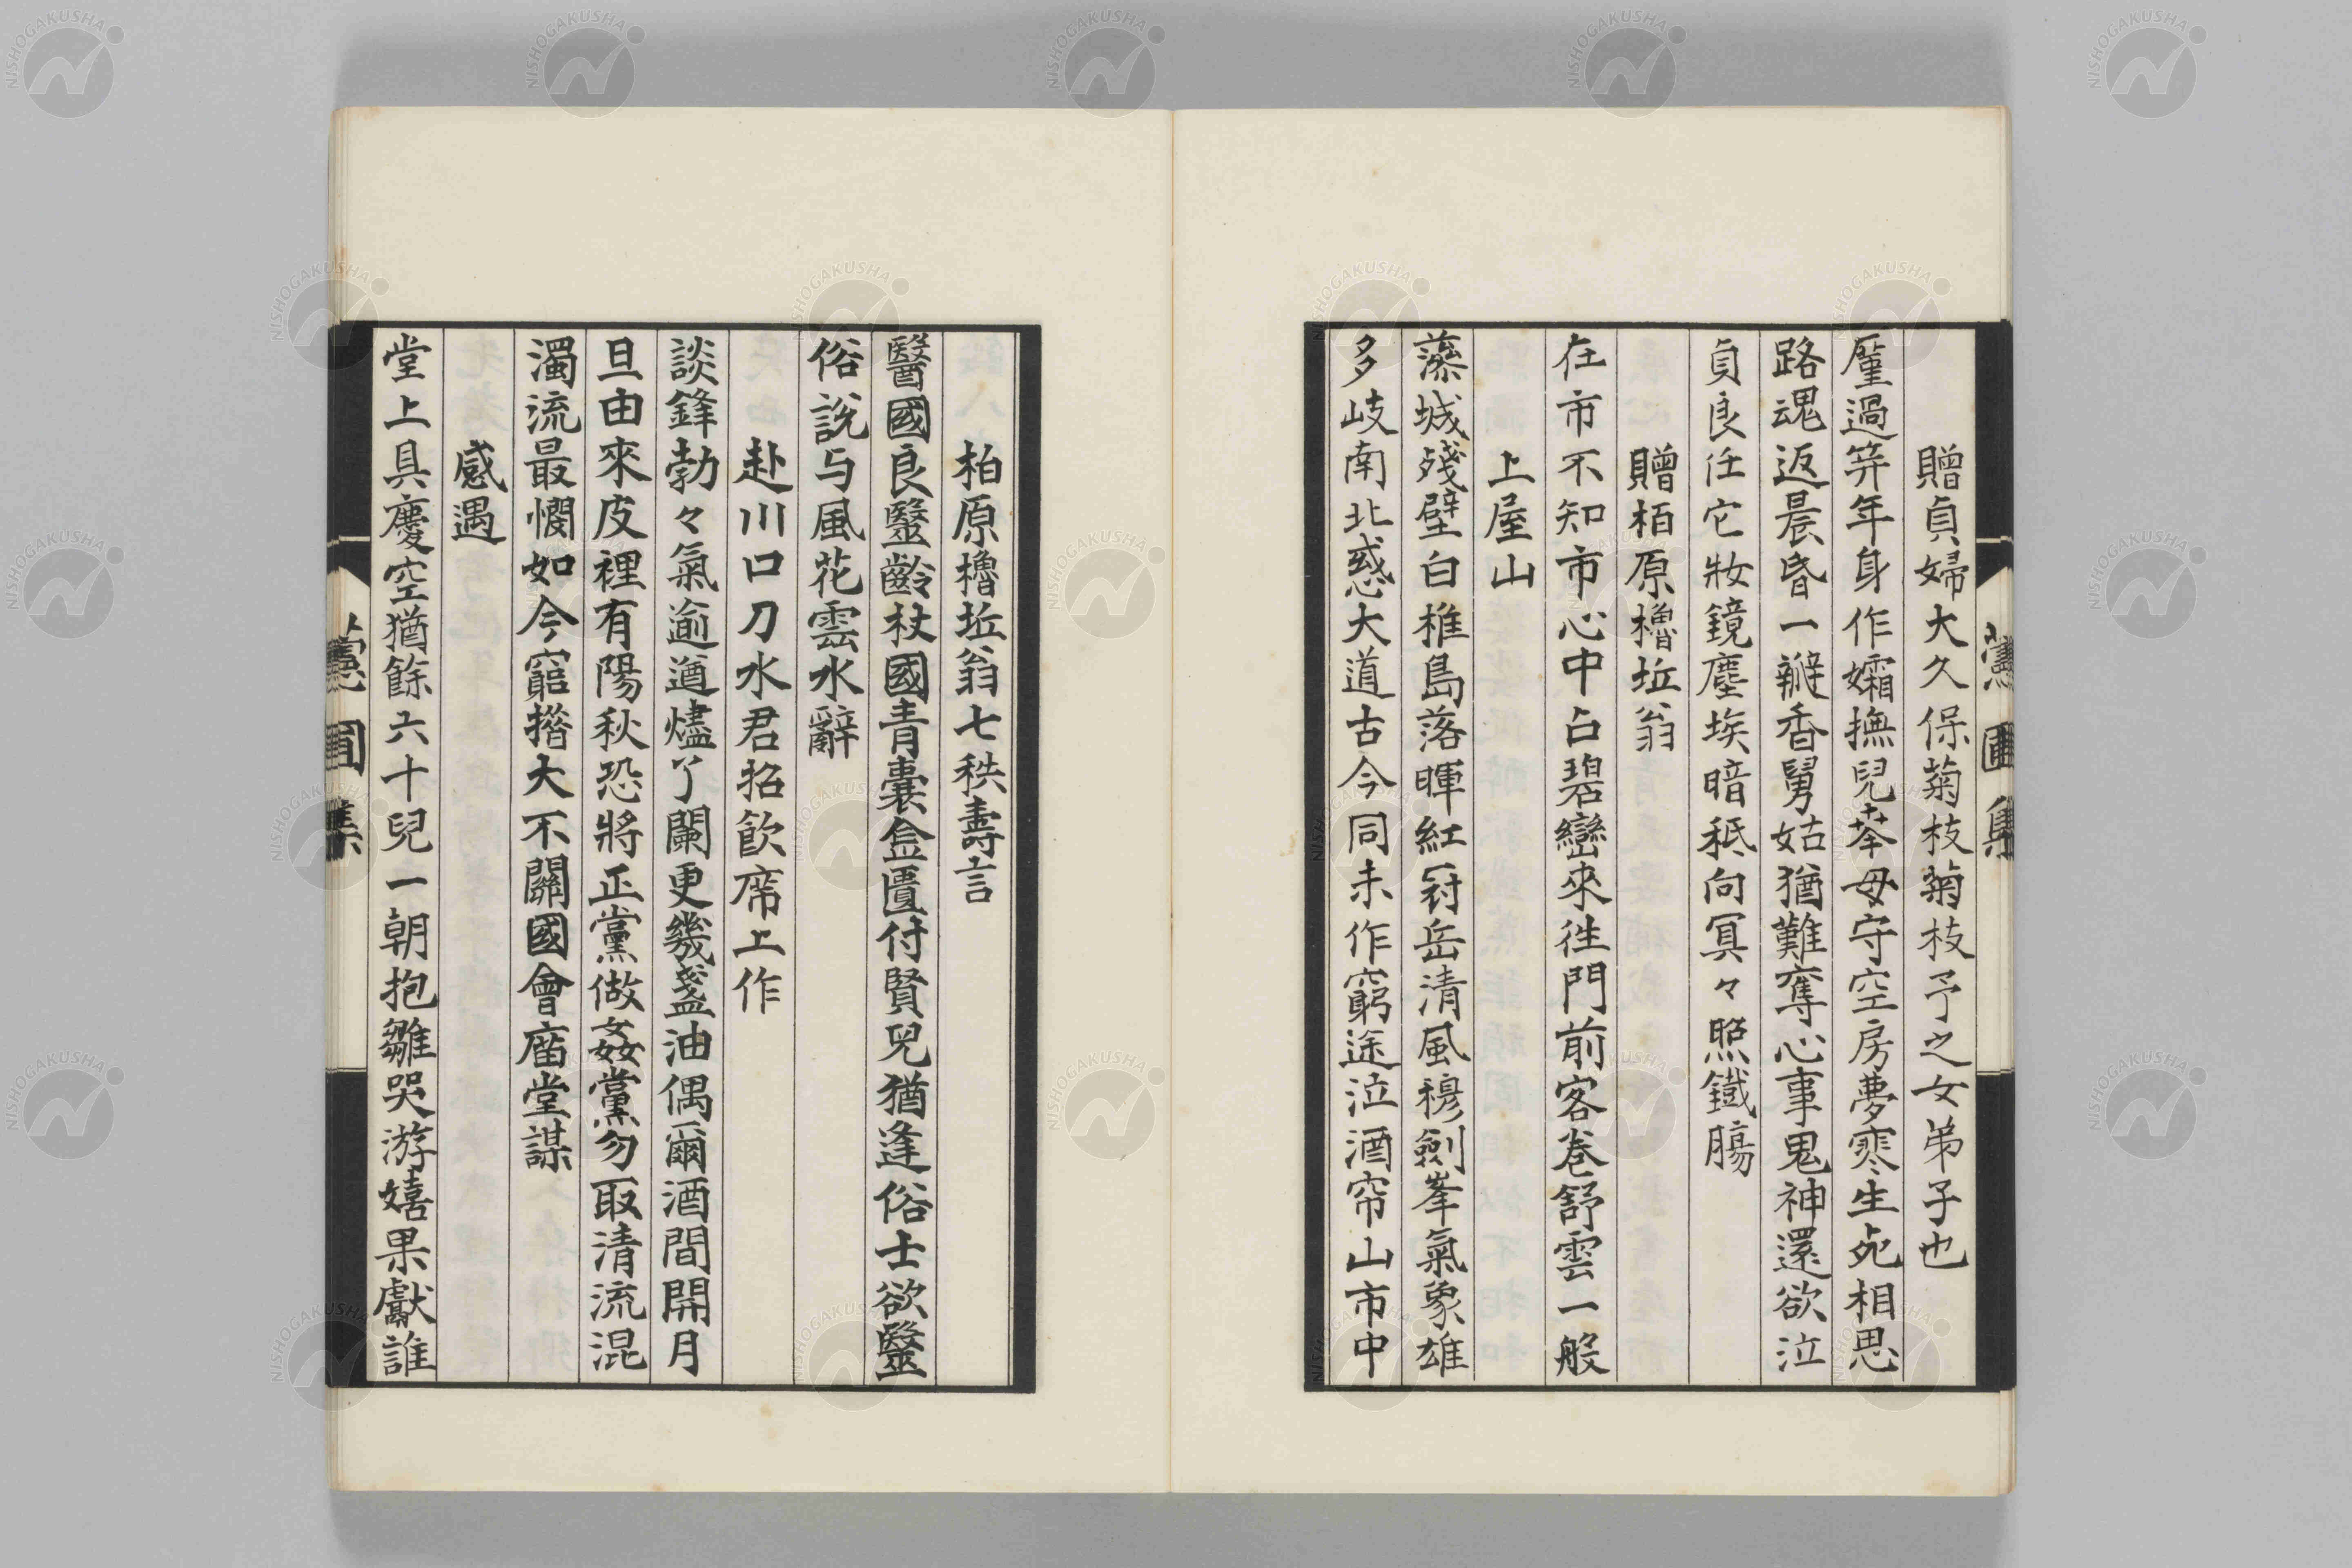 贈貞婦大久保菊枝菊枝予之女弟子也
厪過笄年身作孀撫兒奉母守空房夢寒生死相思
路魂返晨昏一瓣香舅姑猶難奪心事鬼神還欲泣
貞良任它妝鏡塵埃暗秪向冥々照鐵腸
贈栢原櫓坵翁
在市不知市心中占碧巒來徃門前客卷舒雲一般
上屋山
藻城殘壁白椎島落暉紅冠岳清風穆劍峯氣象雄
多岐南北惑大道古今同未作窮途泣酒帘山市中
柏原櫓坵翁七秩壽言
醫國良毉齡杖國青囊金匱付賢兒猶逢俗士欲毉
俗說与風花雲水辭
赴川口刀水君招飲席上作
談鋒勃々氣逾遒燼丫闌更幾盞油偶爾酒間開月
旦由來皮裡有陽秋恐將正黨做姦黨勿取清流混
濁流最憫如今窮措大不關國會廟堂謀
感遇
堂上具慶空猶餘六十兒一朝抱雛哭游嬉果獻誰
圃集
NISHOGAKUSHA